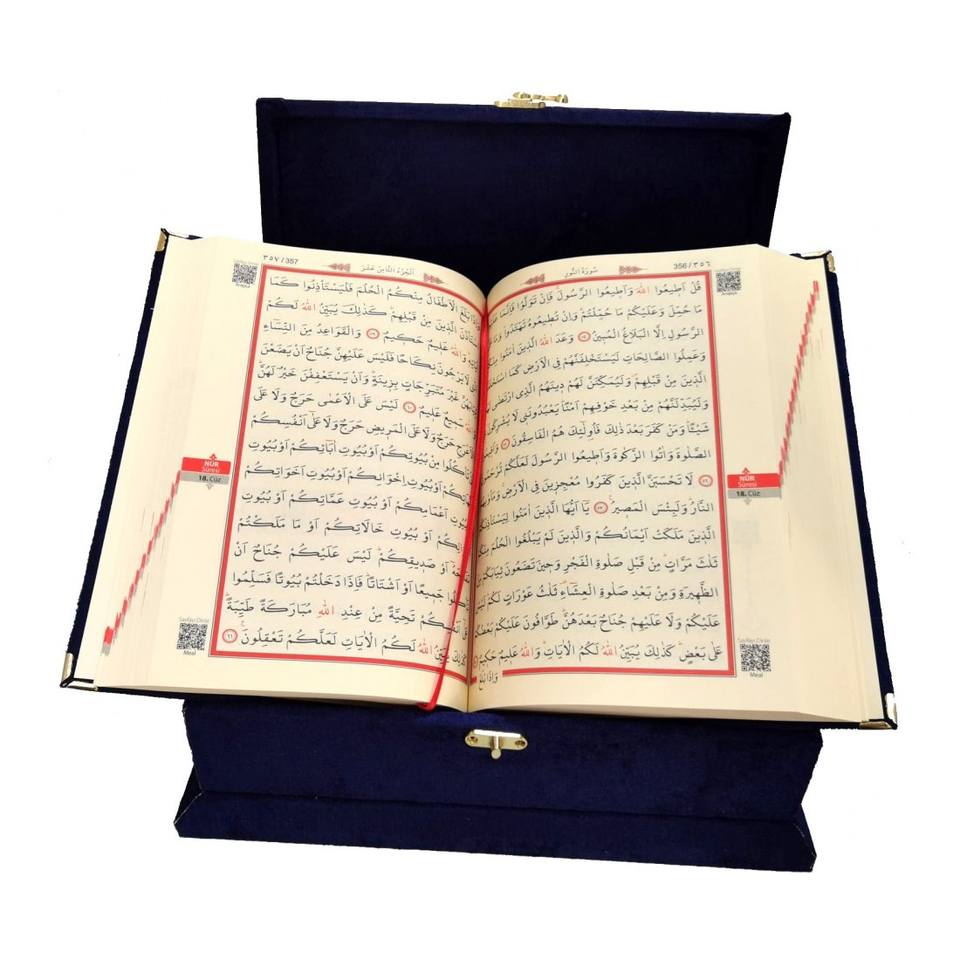 356 / ٣٥٦
سُورَةُ النُّورِ
قُلْ اَطٖيعُوا اللّٰهَ وَاَطٖيعُوا الرَّسُولَ فَاِنْ تَوَلَّوْا فَاِنَّمَا عَلَيْهِ
مَا حُمِّلَ وَعَلَيْكُمْ مَا حُمِّلْتُمْ وَاِنْ تُطٖيعُوهُ تَهْتَدُوا وَمَا عَلَى
الرَّسُولِ اِلَّا الْبَلَاغُ الْمُبٖينُ ﴿٥٤﴾ وَعَدَ اللّٰهُ الَّذٖينَ اٰمَنُوا مِنْكُمْ
وَعَمِلُوا الصَّالِحَاتِ لَيَسْتَخْلِفَنَّهُمْ فِي الْاَرْضِ كَمَا اسْتَخْلَفَ
الَّذٖينَ مِنْ قَبْلِهِمْ وَلَيُمَكِّنَنَّ لَهُمْ دٖينَهُمُ الَّذِي ارْتَضٰى لَهُمْ
وَلَيُبَدِّلَنَّهُمْ مِنْ بَعْدِ خَوْفِهِمْ اَمْنًا يَعْبُدُونَنٖي لَا يُشْرِكُونَ بٖي
شَيْـًٔا وَمَنْ كَفَرَ بَعْدَ ذٰلِكَ فَاُولٰٓئِكَ هُمُ الْفَاسِقُونَ ﴿٥٥﴾ وَاَقٖيمُوا
الصَّلٰوةَ وَاٰتُوا الزَّكٰوةَ وَاَطٖيعُوا الرَّسُولَ لَعَلَّكُمْ تُرْحَمُونَ
﴿٥٦﴾ لَا تَحْسَبَنَّ الَّذٖينَ كَفَرُوا مُعْجِزٖينَ فِي الْاَرْضِ وَمَأْوٰيهُمُ
النَّارُ وَلَبِئْسَ الْمَصٖيرُ ﴿٥٧﴾ يَٓا اَيُّهَا الَّذٖينَ اٰمَنُوا لِيَسْتَأْذِنْكُمُ
الَّذٖينَ مَلَكَتْ اَيْمَانُكُمْ وَالَّذٖينَ لَمْ يَبْلُغُوا الْحُلُمَ مِنْكُمْ
ثَلٰثَ مَرَّاتٍ مِنْ قَبْلِ صَلٰوةِ الْفَجْرِ وَحٖينَ تَضَعُونَ ثِيَابَكُمْ مِنَ
الظَّهٖيرَةِ وَمِنْ بَعْدِ صَلٰوةِ الْعِشَٓاءِ ثَلٰثُ عَوْرَاتٍ لَكُمْ لَيْسَ
عَلَيْكُمْ وَلَا عَلَيْهِمْ جُنَاحٌ بَعْدَهُنَّ طَوَّافُونَ عَلَيْكُمْ بَعْضُكُمْ
عَلٰى بَعْضٍ كَذٰلِكَ يُبَيِّنُ اللّٰهُ لَكُمُ الْاٰيَاتِ وَاللّٰهُ عَلٖيمٌ حَكٖيمٌ
وَاِذَا بَلَغَ
NÛR
Sûresi
18. Cüz
Meal
٣٥٧ / 357
اَلْجُزْءُ الثَّامِنَ عَشَرَ
وَاِذَا بَلَغَ الْاَطْفَالُ مِنْكُمُ الْحُلُمَ فَلْيَسْتَأْذِنُوا كَمَا
اسْتَأْذَنَ الَّذٖينَ مِنْ قَبْلِهِمْ كَذٰلِكَ يُبَيِّنُ اللّٰهُ لَكُمْ
اٰيَاتِهٖ وَاللّٰهُ عَلٖيمٌ حَكٖيمٌ ﴿٥٩﴾ وَالْقَوَاعِدُ مِنَ النِّسَٓاءِ
لَا يَرْجُونَ نِكَاحًا فَلَيْسَ عَلَيْهِنَّ جُنَاحٌ اَنْ يَضَعْنَ
غَيْرَ مُتَبَرِّجَاتٍ بِزٖينَةٍ وَاَنْ يَسْتَعْفِفْنَ خَيْرٌ لَهُنَّ
سَمٖيعٌ عَلٖيمٌ ﴿٦٠﴾ لَيْسَ عَلَى الْاَعْمٰى حَرَجٌ وَلَا عَلَى
حَرَجٌ وَلَا عَلَى الْمَرٖيضِ حَرَجٌ وَلَا عَلٰٓى اَنْفُسِكُمْ
تَأْكُلُوا مِنْ بُيُوتِكُمْ اَوْ بُيُوتِ اٰبَٓائِكُمْ اَوْ بُيُوتِ
اَوْ بُيُوتِ اِخْوَانِكُمْ اَوْ بُيُوتِ اَخَوَاتِكُمْ
بُيُوتِ اَعْمَامِكُمْ اَوْ بُيُوتِ عَمَّاتِكُمْ اَوْ بُيُوتِ
اَوْ بُيُوتِ خَالَاتِكُمْ اَوْ مَا مَلَكْتُمْ
اَوْ صَدٖيقِكُمْ لَيْسَ عَلَيْكُمْ جُنَاحٌ اَنْ
تَأْكُلُوا جَمٖيعًا اَوْ اَشْتَاتًا فَاِذَا دَخَلْتُمْ بُيُوتًا فَسَلِّمُوا
عَلٰٓى اَنْفُسِكُمْ تَحِيَّةً مِنْ عِنْدِ اللّٰهِ مُبَارَكَةً طَيِّبَةً
كَذٰلِكَ يُبَيِّنُ اللّٰهُ لَكُمُ الْاٰيَاتِ لَعَلَّكُمْ تَعْقِلُونَ ﴿٦١﴾
NÛR
Sûresi
18. Cüz
Sayfayı Dinle
Meal